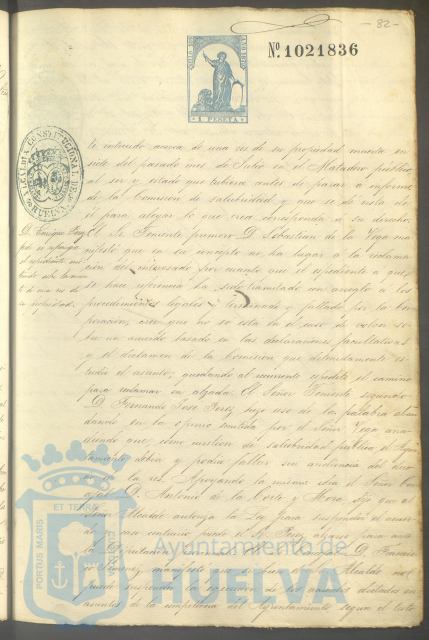 - 82 -
Nº 1021836
1 PESETA
ALCALDIA CONSTITUCIONAL DE HUELVA
te entender acerca de una res de su propiedad muerta en
siete del pasado mes de Julio en el Matadero público,
al ser y estado que tubiera antes de pasar a informe
de la Comisión de salubridad y que se dé vista de
él para alegar lo que crea corresponda a su derecho.
D. Enrique Perez
El Sr Teniente primero D. Sebastian de la Vega ma-
nifestó que en su concepto no ha lugar a la reclama-
ción del interesado por cuanto que el espediente a que
se hace referencia ha sido tramitado con arreglo a los
procedimientos legales terminado y fallado por la Cor-
poración, cree que no se está en el caso de volver so-
bre un acuerdo basado en las declaraciones facultativas
y el dictamen de la Comisión que detenidamente es-
tudió el asunto; quedando al recurrente espedito el camino
para reclamar en alzada. El Señor Teniente segundo
D. Fernando José Perez hizo uso de la palabra abun-
dando en la opinión emitida por el Señor Vega aña-
diendo que, como cuestion de salubridad pública el Ayun-
tamiento debía y podía fallar sin audiencia del dueño
de la res. Apoyando la misma idea el Señor Con-
cejal D. Antonio de la Corte y Mora, dijo que al
Señor Alcalde autoriza la Ley para suspender el acuer-
do
puede el Sr Perez alzarse para ante
la Diputación
D. Francis-
co Jimenez manifestó
Alcalde no
puede suspender la ejecucion de los acuerdos dictados en
asuntos de la competencia del Ayuntamiento segun el testo
ET TERRA
PORTUS MARIS
CUSTODIA
Ayuntamiento de
HUELVA